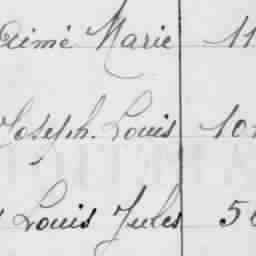 Aimé Marie 11
Joseph Louis 101
Louis Jules 50